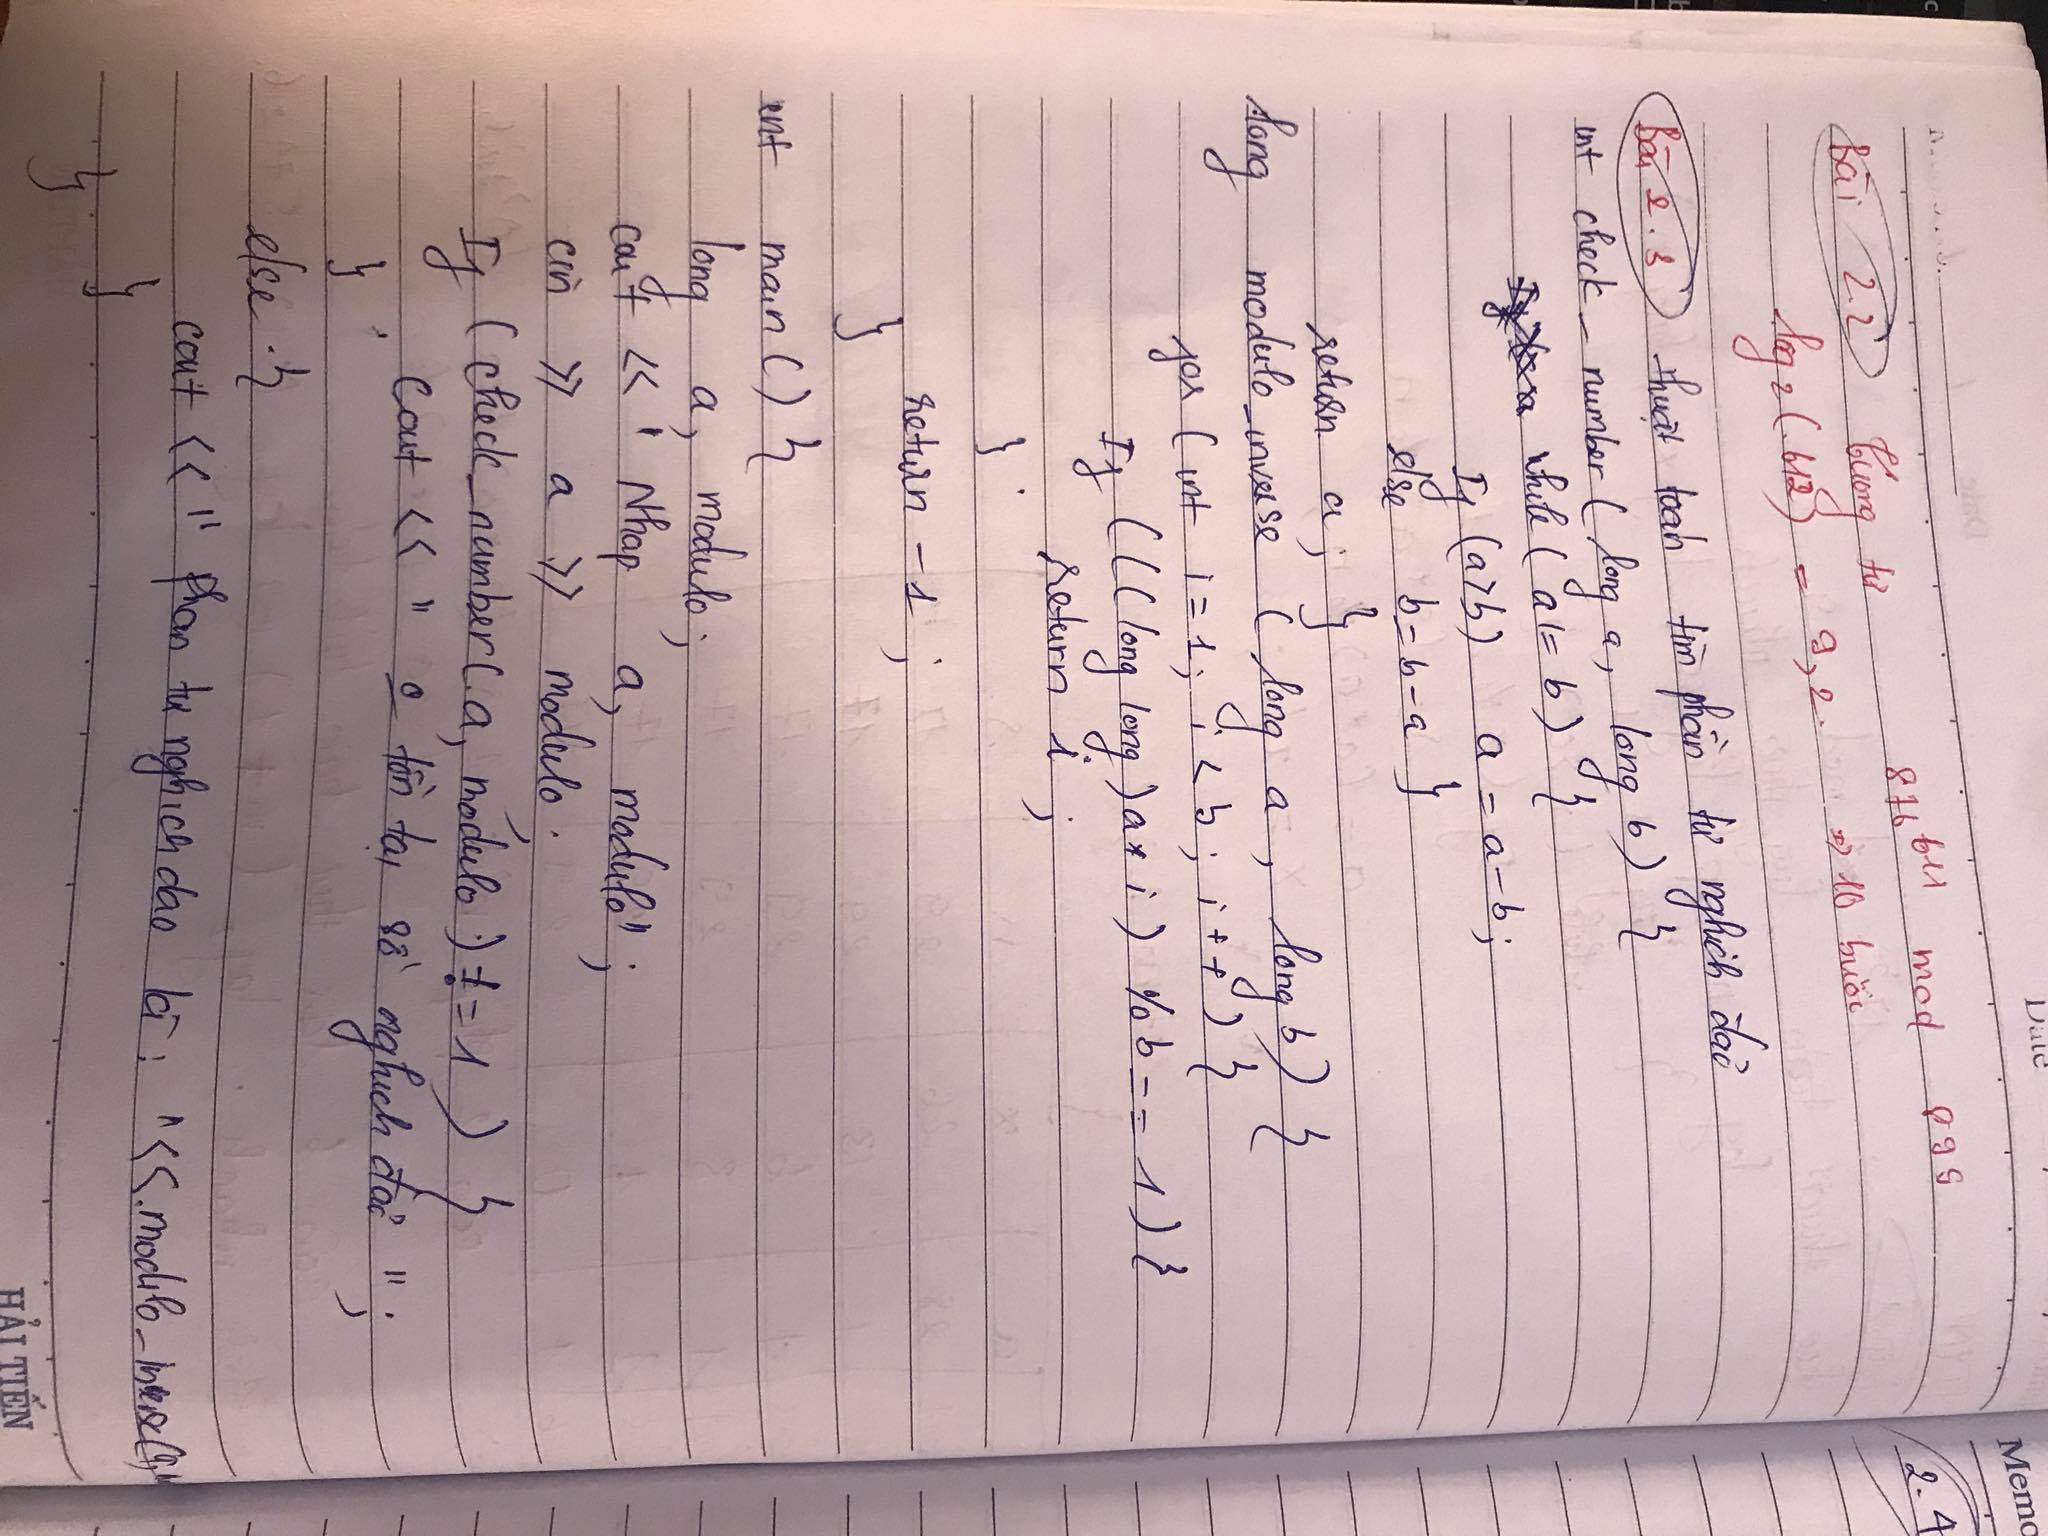 Date
Bài 2.2 tương tự 876^611 mod 899
log2(612) = 9,2. => 10 bước
Bài 2.3 thuật toán tìm phần tử nghịch đảo
int check_number (long a, long b) {
while (a != b) {
If (a>b) a = a-b;
else b = b-a }
return a; }
long modulo_inverse (long a, long b) {
for (int i = 1; i < b; i++) {
If (((long long) a * i) % b == 1) {
return i;
}
return -1;
}
int main() {
long a, modulo;
cout << " Nhap a, modulo";
cin >> a >> modulo.
If (check_number(a, modulo) != 1) {
Cout << " o tồn tại số nghịch đảo ";
}
else {
cout << " phan tu nghich dao là: " << modulo_inverse(a,
}
}
HẢI TIẾN
Memo
2.4